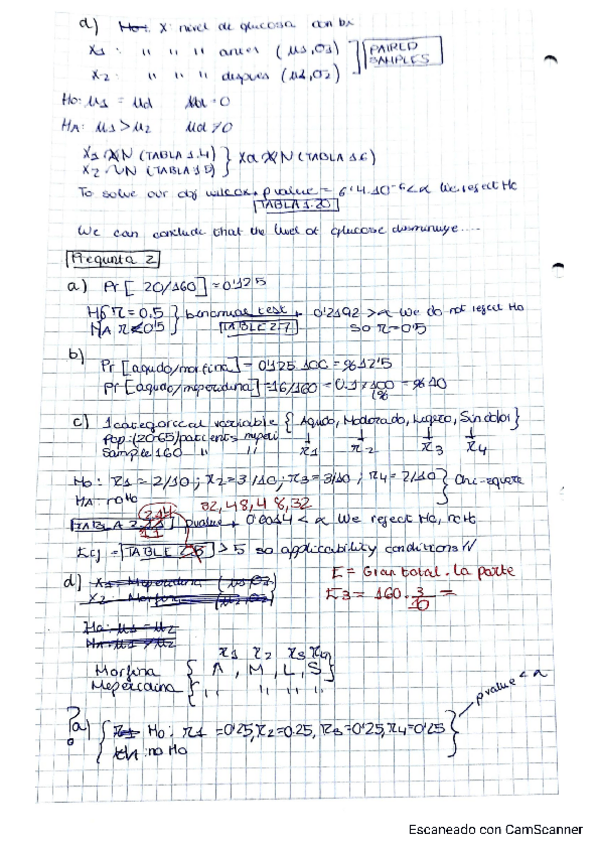 d) X: nivel de glucosa con bx
X1: " " " antes (μ1,σ1) PAIRED SAMPLES
X2: " " " despues (μ2,σ2)
Ho: μ1 = μd μd = 0
HA: μ1 > μ2 μd ≠ 0
X1 N (TABLA 1.4)
X2 N (TABLA 1.5) Xd N (TABLA 1.6)
To solve our wilcox, pvalue = 6'4.10-6 < α We reject Ho
TABLA 1.20
We can conclude that the level of glucose disminuye....
Pregunta 2
a) Pr [20/160] = 0'125
Ho π = 0.5 binomial test 0'2192 > α We do not reject Ho
HA π < 0'5 TABLE 2.7 so π = 0'5
b) Pr [agudo/morfina] = 0'125 . 100 = % 12'5
Pr [agudo/meperidina] = 16/160 = 0.1 . 100 = % 10
c) 1 categorical variable {Agudo, Moderado, Ligero, Sin dolor}
Pop: (2065) patients meperi π1 π2 π3 π4
Sample 160 " "
Ho: π1 = 2/10; π2 = 3/10; π3 = 3/10; π4 = 2/10 Chi-square
HA: no Ho
32, 48, 48, 32
pvalue 0'0014 < α We reject Ho, no Ho
Eij = TABLE > 5 so applicability conditions
d) X1 Meperidina
E = Gran total . la parte
X2 Morfina
E3 = 160 . 3/10 =
Ho: μ1 = μ2
π1 π2 π3 π4
Morfina { A, M, L, S }
Meperidina { " " " " }
pvalue < α
?a) Ho: π1 = 0'25, π2 = 0.25, π3 = 0'25, π4 = 0'25
no Ho
Escaneado con CamScanner